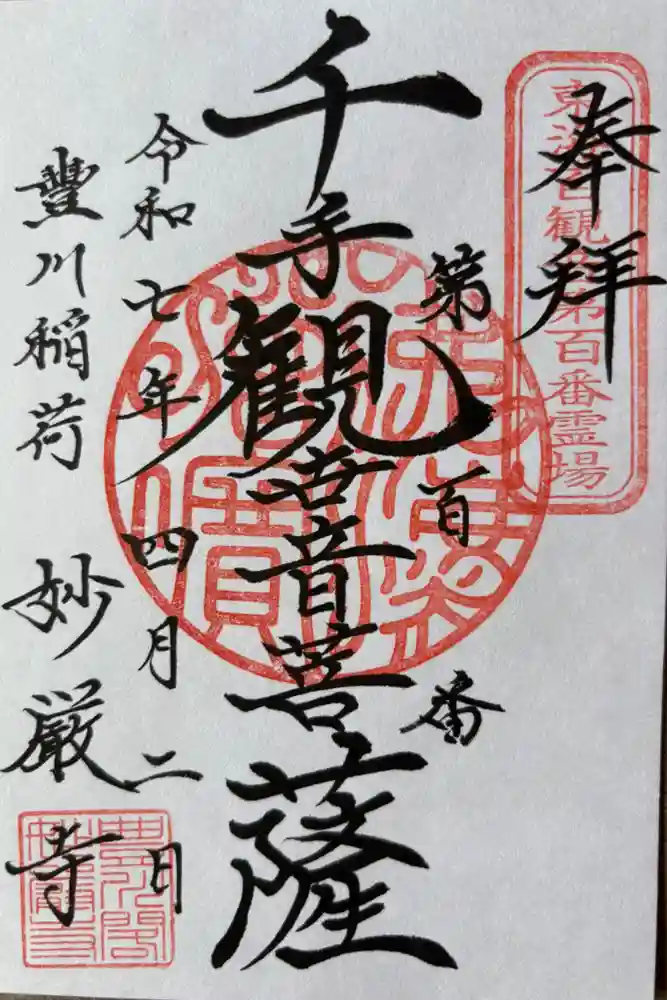 奉拝
東海百観音第百番霊場
第百番
千手観世音菩薩
令和七年四月二日
豐川稲荷 妙厳寺